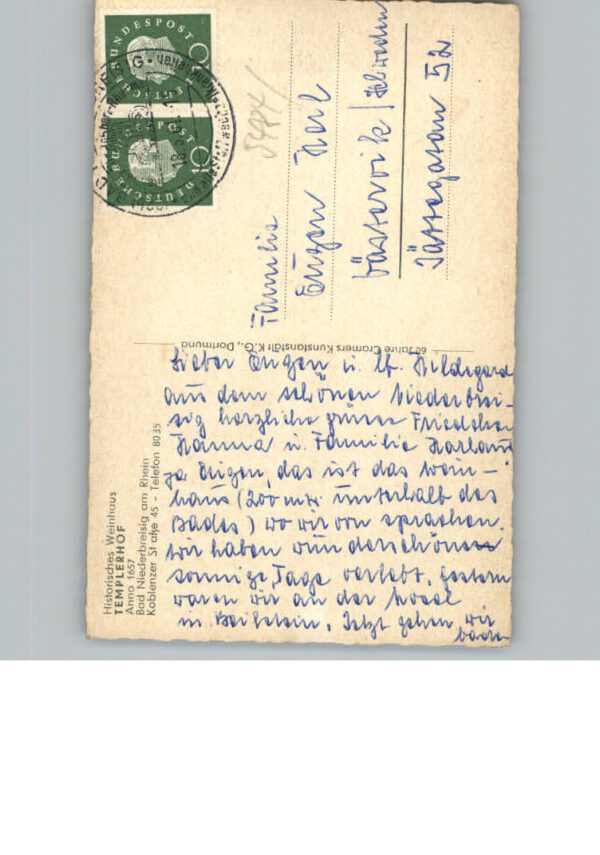 Historisches Weinhaus
TEMPLERHOF
Anno 1657
Bad Niederbreisig am Rhein
Koblenzer Straße 45 - Telefon 8035
Lieber Eugen u. lb. Hildegard
aus dem schönen Niederbrei-
sig herzliche Grüsse
Hanna u. Familie
ja Eugen, das ist das Wein-
haus (200 mtr. unterhalb des
Bades) wo wir von sprachen.
Wir haben wunderschöne
sonnige Tage verlebt, gestern
waren wir an der Mosel
in Beilstein. Jetzt gehen wir
baden
60 Jahre Cramers Kunstanstalt K.G., Dortmund
Familie
Eugen
Västervik / Schweden
52
DEUTSCHE BUNDESPOST
10
DEUTSCHE BUNDESPOST
10